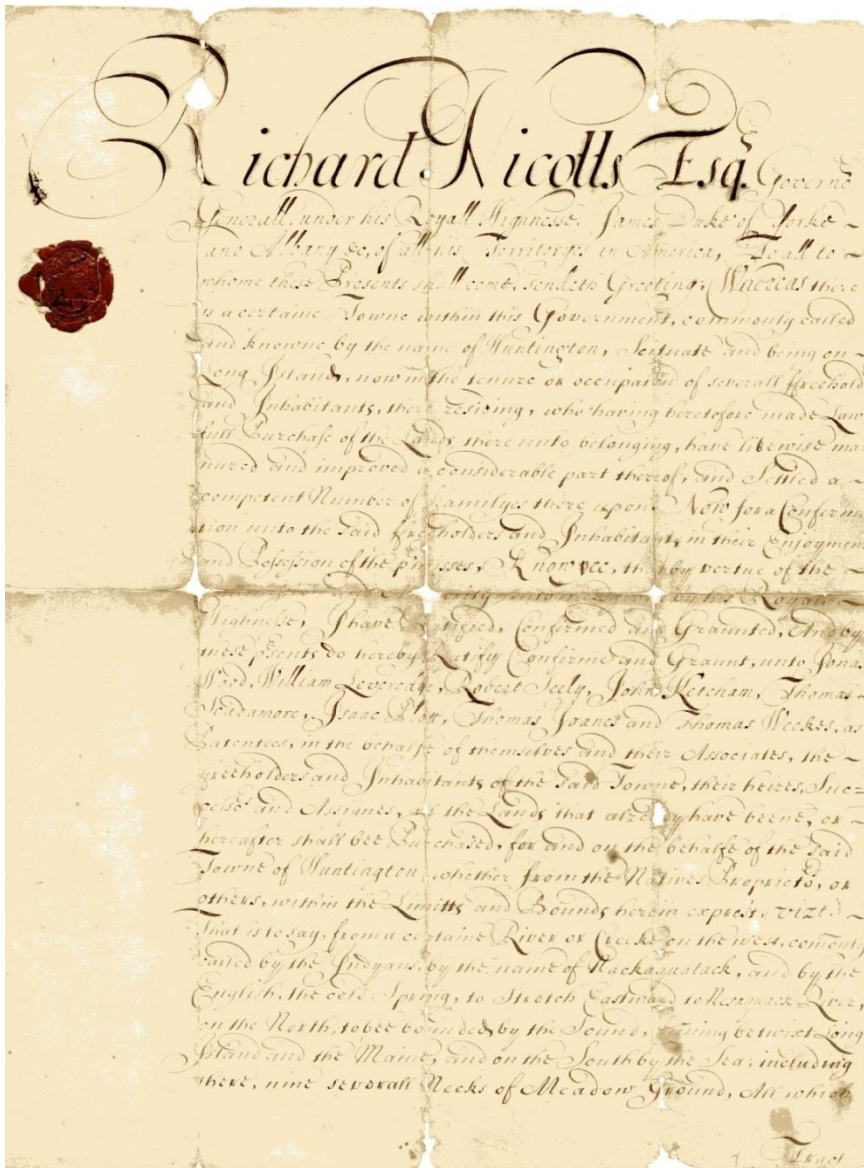 Richard Nicolls Esq. Governo
Generall, under his Royall Highnesse, James Duke of Yorke ~
and Albany &c, of all his Territoryes in America, To all to ~
whome these Presents shall come, sendeth Greeting, Whereas there
is a certaine Towne within this Government, commonly called
and knowne by the name of Huntington, Scituate and being on ~
Long Island, now in the tenure or occupation of severall ffreehold
and Inhabitants, there residing, who having heretofore made Law
full Purchase of the Lands there unto belonging, have likewise ma
nured and improved a considerable part thereof, and Settled a ~
competent Number of Familyes there upon. Now for a Confirma
tion unto the said ffreeholders and Inhabitants in their Enjoyment
and Possession of the p'misses, Know yee, that by vertue of the ~
and by his Royall ~
Highnesse, I have Ratified, Confirmed and Graunted, And by
these p'sents do hereby Ratify Confirme and Graunt, unto Jonas
Wood, William Leveredge, Robert Seely, John Ketcham, Thomas ~
Scudamore, Isaac Platt, Thomas Joanes and Thomas Weekes, as
Patentees, in the behalfe of themselves and their Associates, the ~
ffreeholders and Inhabitants of the said Towne, their heires, Suc=
cesso's and Assignes, all the Lands that already have beene, or ~
hereafter shall bee Purchased, for and on the behalfe of the said
Towne of Huntington, whether from the Natives Proprieto's, or
others, within the Limitts and Bounds herein exprest, vizt. ~
That is to say, from a certaine River or Creeke on the west, comonly
called by the Indyans by the name of Nackaquatack, and by the
English, the cold Spring, to Stretch Eastward to Nesequack River,
on the North, to bee bounded by the Sound, runing betwixt Long
Island and the Maine, and on the South by the Sea, including
there, nine severall Necks of Meadow Ground, All which
Tract